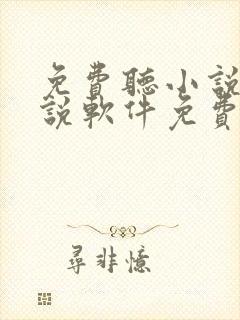 免費聽小說
說軟件免費
尋非憶